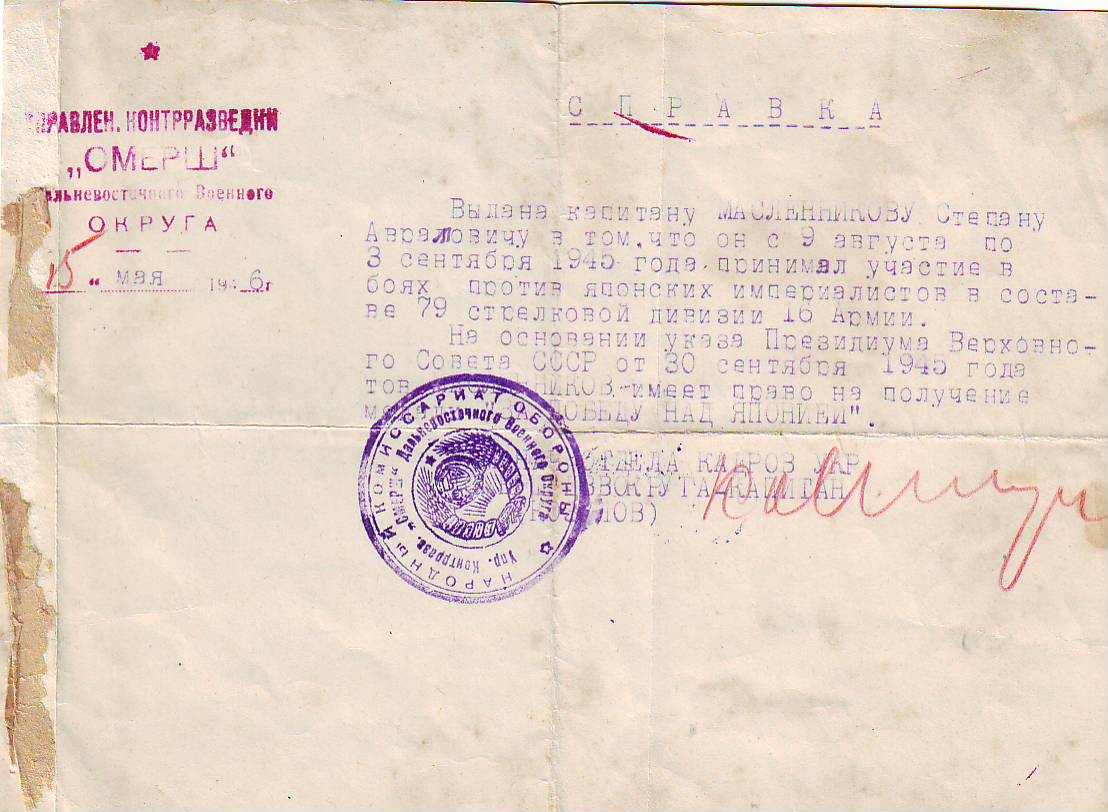 УПРАВЛЕН. КОНТРРАЗВЕДКИ
„СМЕРШ“
Дальневосточного Военного
ОКРУГА
15 " мая 1946г
СПРАВКА
Выдана капитану МАСЛЕННИКОВУ Степану
Авраловичу в том, что он с 9 августа по
3 сентября 1945 года принимал участие в
боях против японских империалистов в соста-
ве 79 стрелковой дивизии 16 Армии.
На основании указа Президиума Верховно-
го Совета СССР от 30 сентября 1945 года
тов НИКОВ-имеет право на получение
ОБЕДУ НАД ЯПОНИЕЙ".
ОТДЕЛА КАДРОВ УКР
КАПИТАН
ЛОВ)
НАРОДНЫЙ КОМИССАРИАТ ОБОРОНЫ
Упр. Контрразв. „Смерш“ Дальневосточного Военного Округа